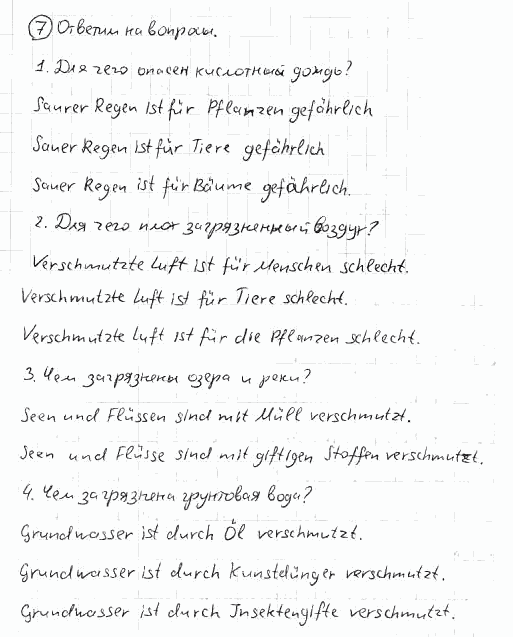 7 Ответим на вопросы.
1. Для чего опасен кислотный дождь?
Saurer Regen ist für Pflanzen gefährlich
Sauer Regen ist für Tiere gefährlich
Sauer Regen ist für Bäume gefährlich.
2. Для чего плох загрязненный воздух?
Verschmutzte Luft ist für Menschen schlecht.
Verschmutzte Luft ist für Tiere schlecht.
Verschmutzte Luft ist für die Pflanzen schlecht.
3. Чем загрязнены озера и реки?
Seen und Flüssen sind mit Müll verschmutzt.
Seen und Flüsse sind mit giftigen Stoffen verschmutzt.
4. Чем загрязнена грунтовая вода?
Grundwasser ist durch Öl verschmutzt.
Grundwasser ist durch Kunstdünger verschmutzt.
Grundwasser ist durch Insektengifte verschmutzt.